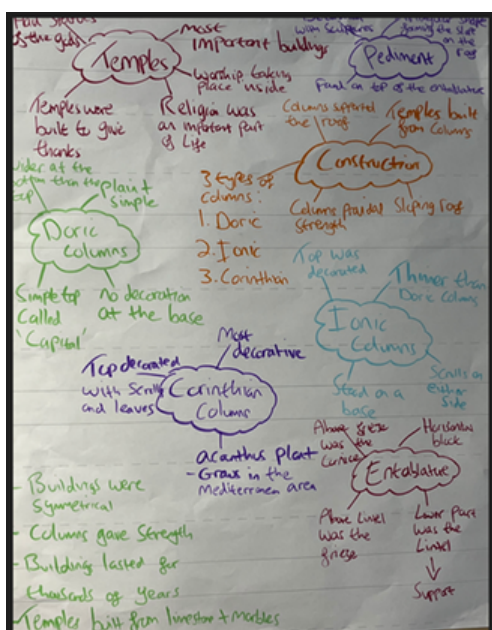 of the gods
Temples
Most
important buildings
Worship taking
place inside
Temples were
built to give
thanks
Religion was
an important part
of Life
with Sculptures
on the
roof
Pediment
Found on top of the entablature
Columns supported
the roof
Temples built
from Columns
Construction
3 types of
columns :
1. Doric
2. Ionic
3. Corinthian
Columns
Strength
Sloping roof
wider at the
bottom than the
top
plain +
simple
Doric
Columns
Simple top
Called
'Capital'
No decoration
at the base
Top was
decorated
Thinner than
Doric Columns
Ionic
Columns
Stood on a
base
Scrolls on
either
side
Most
decorative
Top decorated
with Scrolls
and leaves
Corinthian
Column
acanthus plant
- Grows in the
Mediterranean area
Above
was the
Horizontal
block
Entablature
Above Lintel
was the
Lower Part
was the
Lintel
Support
- Buildings were
Symmetrical
- Columns gave Strength
- Buildings lasted for
thousands of years
- Temples built from limestone + marbles